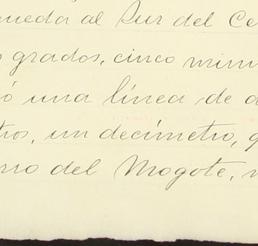 queda al Sur del Ce
grados, cinco minu
ó una línea de d
tros, un decímetro, q
rro del Mogote,